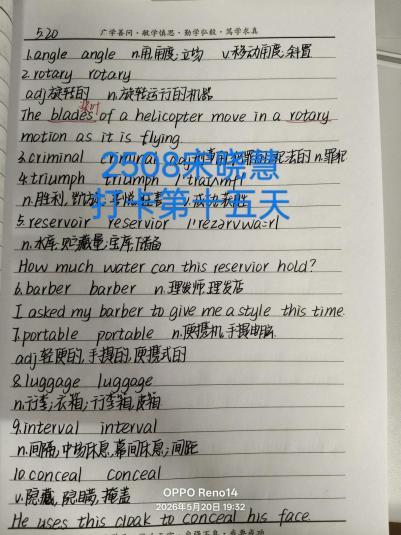 520
广学善问·敏学慎思·勤学弘毅·笃学求真
1.angle angle n.角,角度;立场 v.移动角度;斜置
2.rotary rotary
adj.旋转的 n.旋转运行的机器
桨叶
The blades of a helicopter move in a rotary
motion as it is flying.
3.criminal criminal adj. n.罪犯
2508宋晓慧
4.triumph triumph
打卡第十五天
n.胜利,
5.reservoir reservior
n.水库;贮藏量;宝库;储备
How much water can this reservior hold?
6.barber barber n.理发师,理发店
I asked my barber to give me a style this time.
7.portable portable n.便携机,手提电脑
adj.轻便的,手提的,便携式的
8.luggage luggage
n.行李;衣箱;行李箱,皮箱
9.interval interval
n.间隔,中场休息,幕间休息;间距
10.conceal conceal
v.隐藏,隐瞒,掩盖
OPPO Reno14
2026年5月20日 19:32
He uses this cloak to conceal his face.